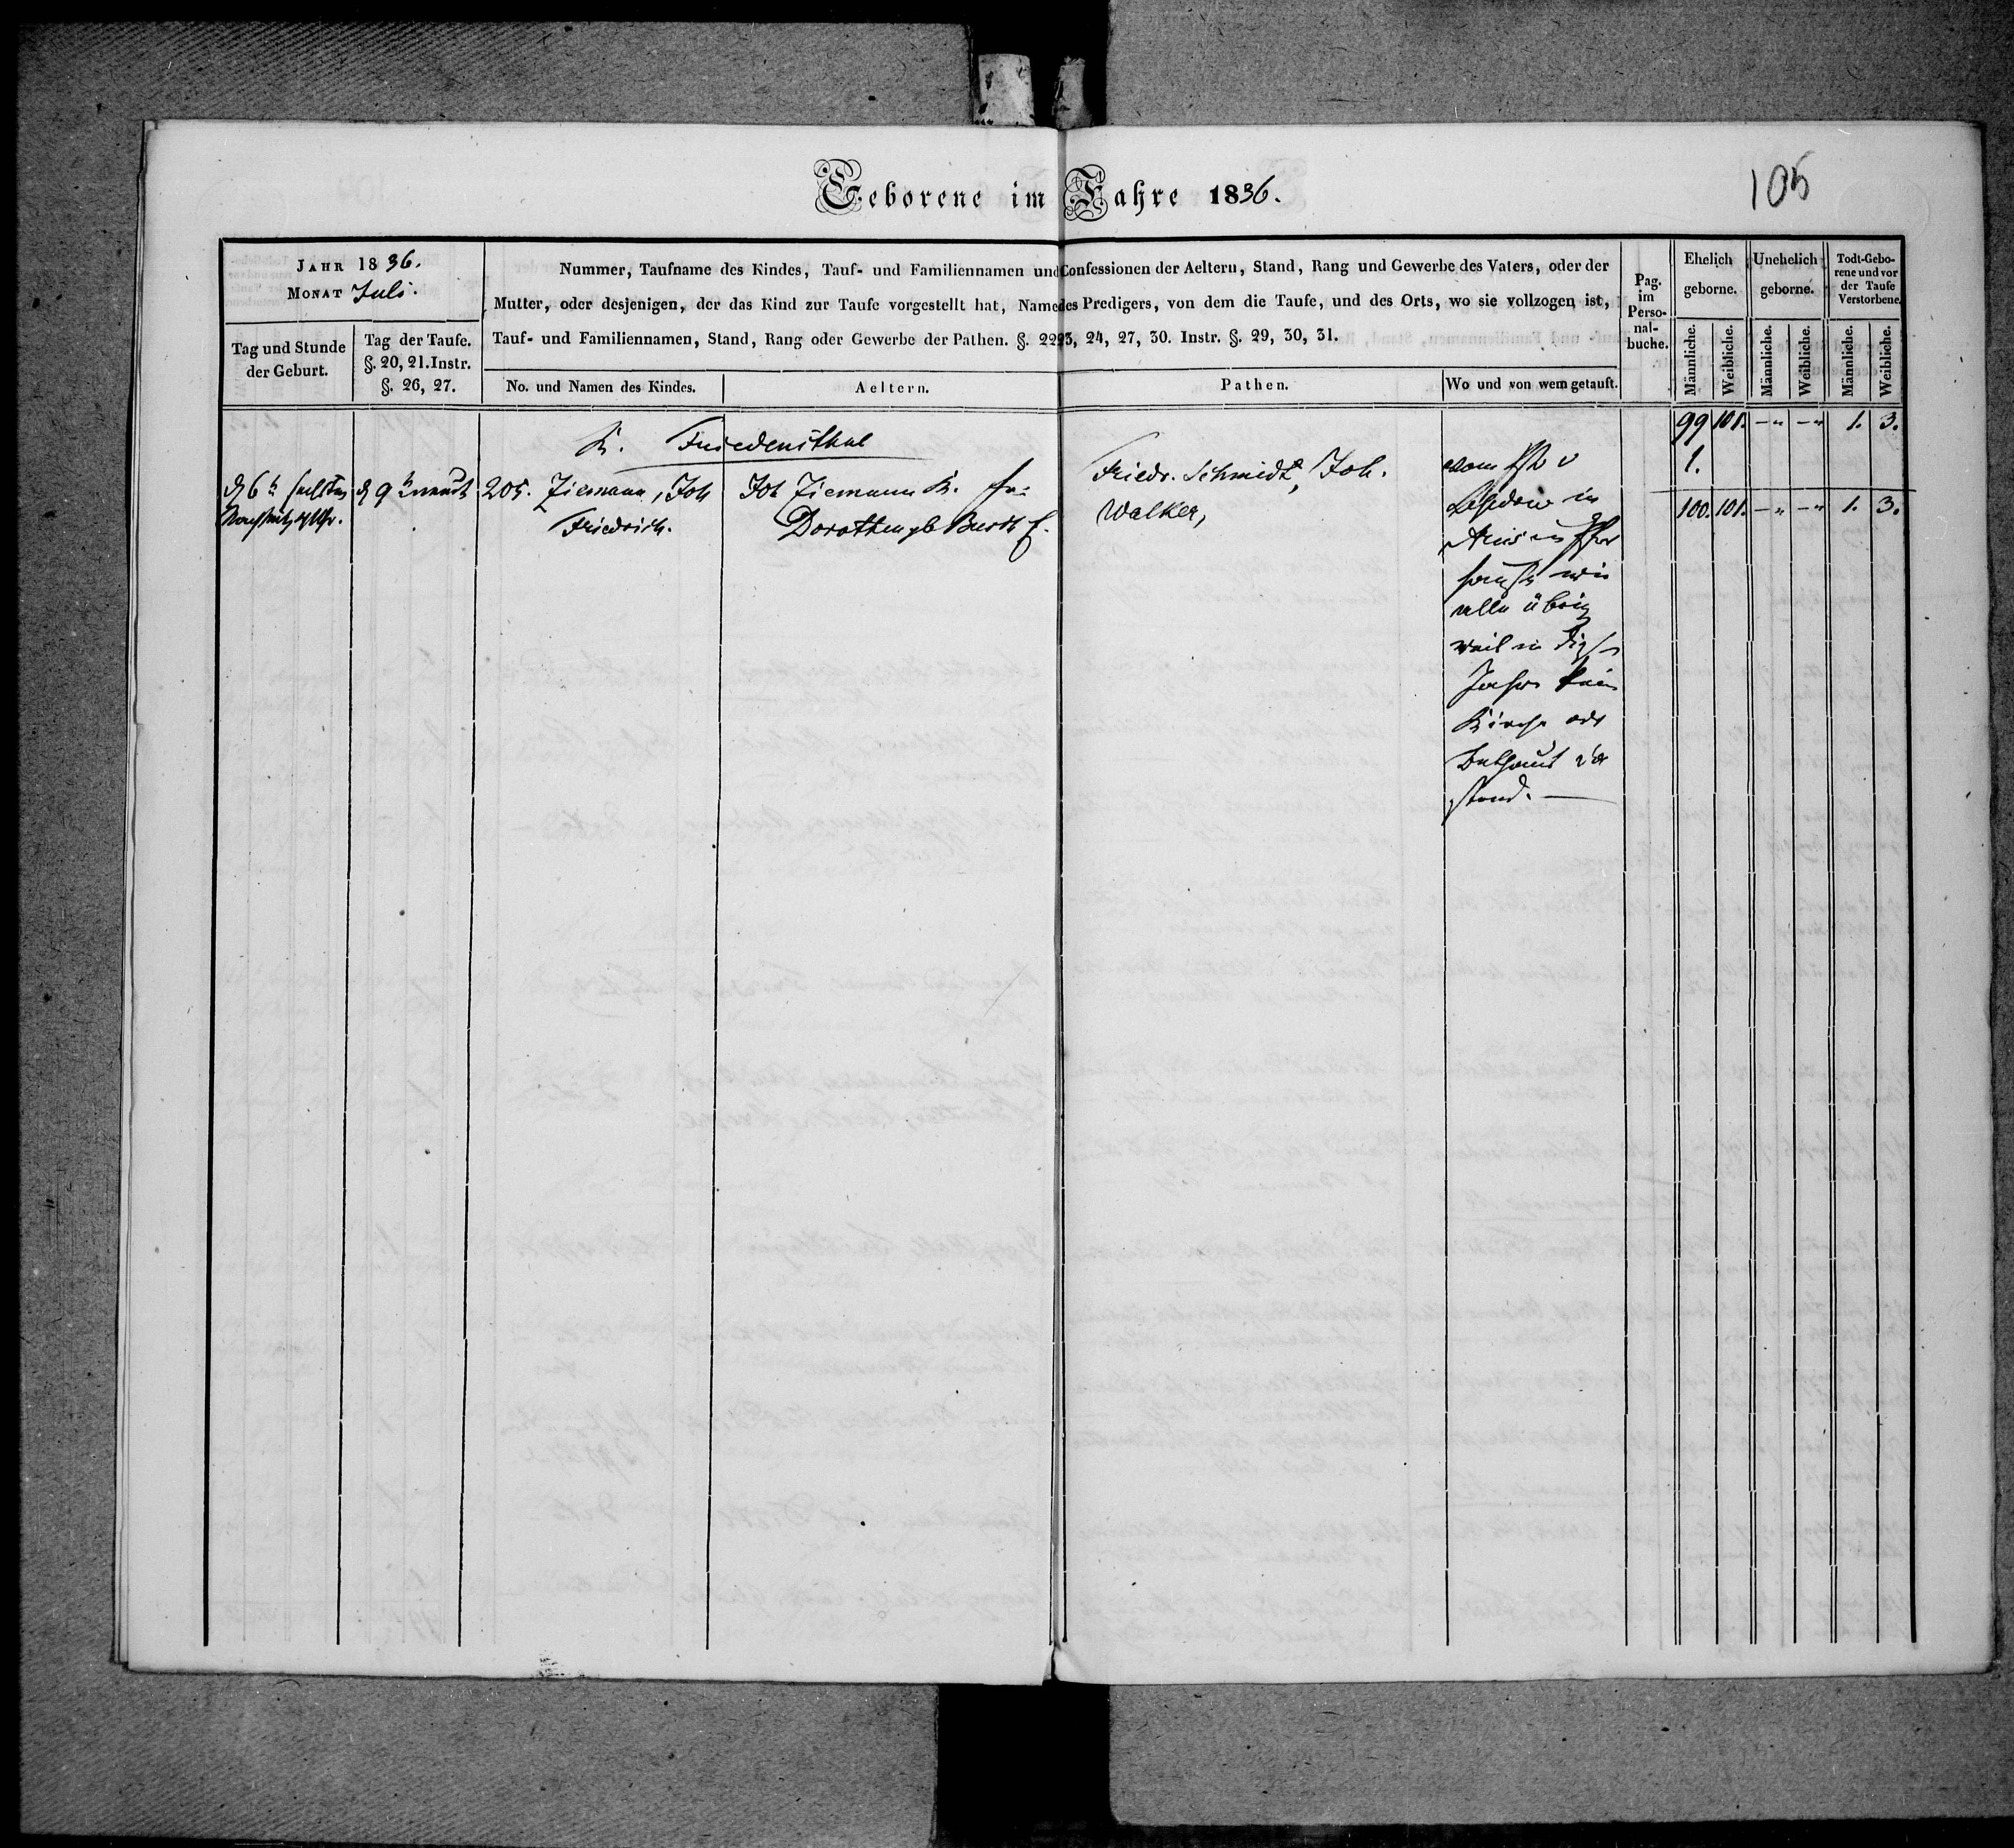 Geborene im Jahre 1836.
105
Jahr 1836.
Monat Juli.
Tag und Stunde der Geburt.
Tag der Taufe. §. 20, 21. Instr. §. 26, 27.
Nummer, Taufname des Kindes, Tauf- und Familiennamen und Confessionen der Aeltern, Stand, Rang und Gewerbe des Vaters, oder der
Mutter, oder desjenigen, der das Kind zur Taufe vorgestellt hat, Name des Predigers, von dem die Taufe, und des Orts, wo sie vollzogen ist,
Tauf- und Familiennamen, Stand, Rang oder Gewerbe der Pathen. §. 22 23, 24, 27, 30. Instr. §. 29, 30, 31.
No. und Namen des Kindes.
Aeltern.
Pathen.
Wo und von wem getauft.
Pag. im Perso-nal-buche.
Ehelich geborne.
Unehelich geborne.
Todt-Gebo-rene und vor der Taufe Verstorbene.
Männliche. Weibliche. Männliche. Weibliche. Männliche. Weibliche.
99 101. -"- -"- 1. 3.
K. Friedensthal
1.
d 6 d 9
205. Ziemann, Joh
Friedrich.
Joh Ziemann K.
Dorothea gb
Friedr. Schmidt, Joh.
Walker,
vom
in
wie
alle übrig
weil in
Jahr kein
Kirche od
Bethaus
stand.
100. 101. -"- -"- 1. 3.